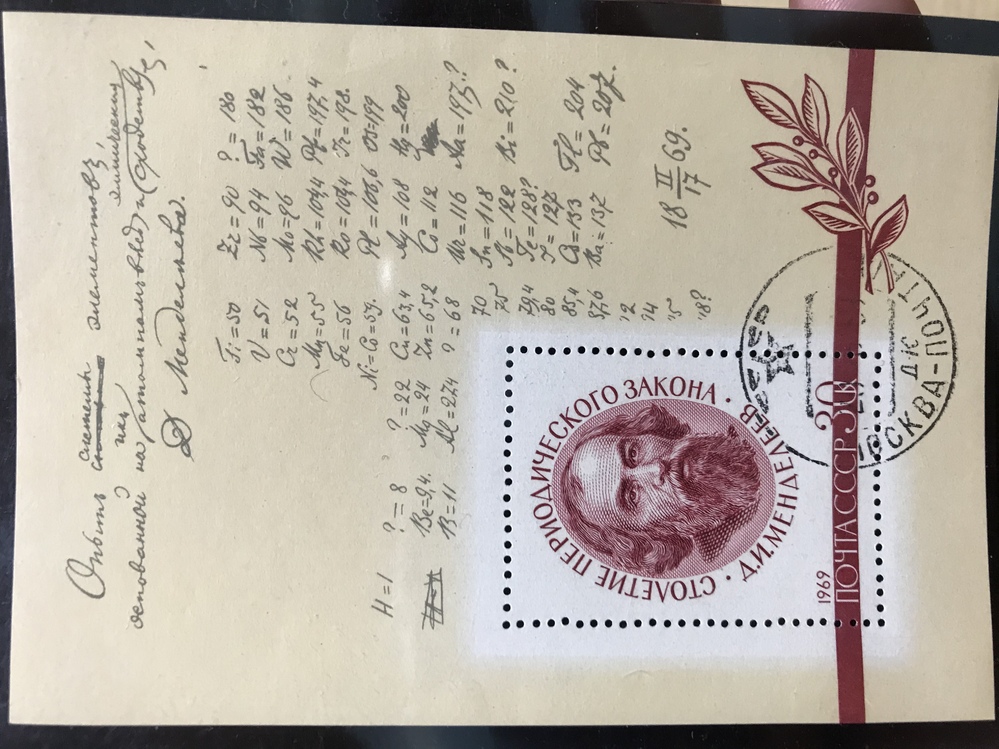 Опытъ системы элементовъ,
основанной на ихъ атомномъ весѣ и химическомъ сходствѣ
Д Менделеевъ.
Ti=50 Zr=90 ?=180
V=51 Nb=94 Ta=182
Cr=52 Mo=96 W=186
Mn=55 Rh=104,4 Pt=197,4
Fe=56 Ru=104,4 Ir=198.
Ni=Co=59. Pl=106,6 Os=199
H=1 ?=8 ?=22 Cu=63,4 Ag=108 Hg=200
Be=9,4. Mg=24 Zn=65,2 Cd=112
B=11 Al=27,4 ?=68 Ur=116 Au=197?
70 Sn=118
75 Sb=122 Bi=210?
79,4 Te=128?
80 J=127
85,4 Cs=133 Tl=204
87,6 Ba=137 Pb=207.
18 II/17 69.
СТОЛЕТИЕ ПЕРИОДИЧЕСКОГО ЗАКОНА · Д.И.МЕНДЕЛЕЕВ ·
1969
ПОЧТА СССР 30К
МОСКВА-ПОЧТАМТ